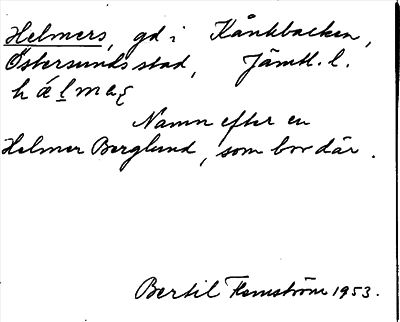 Helmers, gd i Kånkbacken,
Östersunds stad, Jämtl. l.
hǽlmaṣ
Namn efter en
Helmer Berglund, som bor där.
Bertil Flemström 1953.